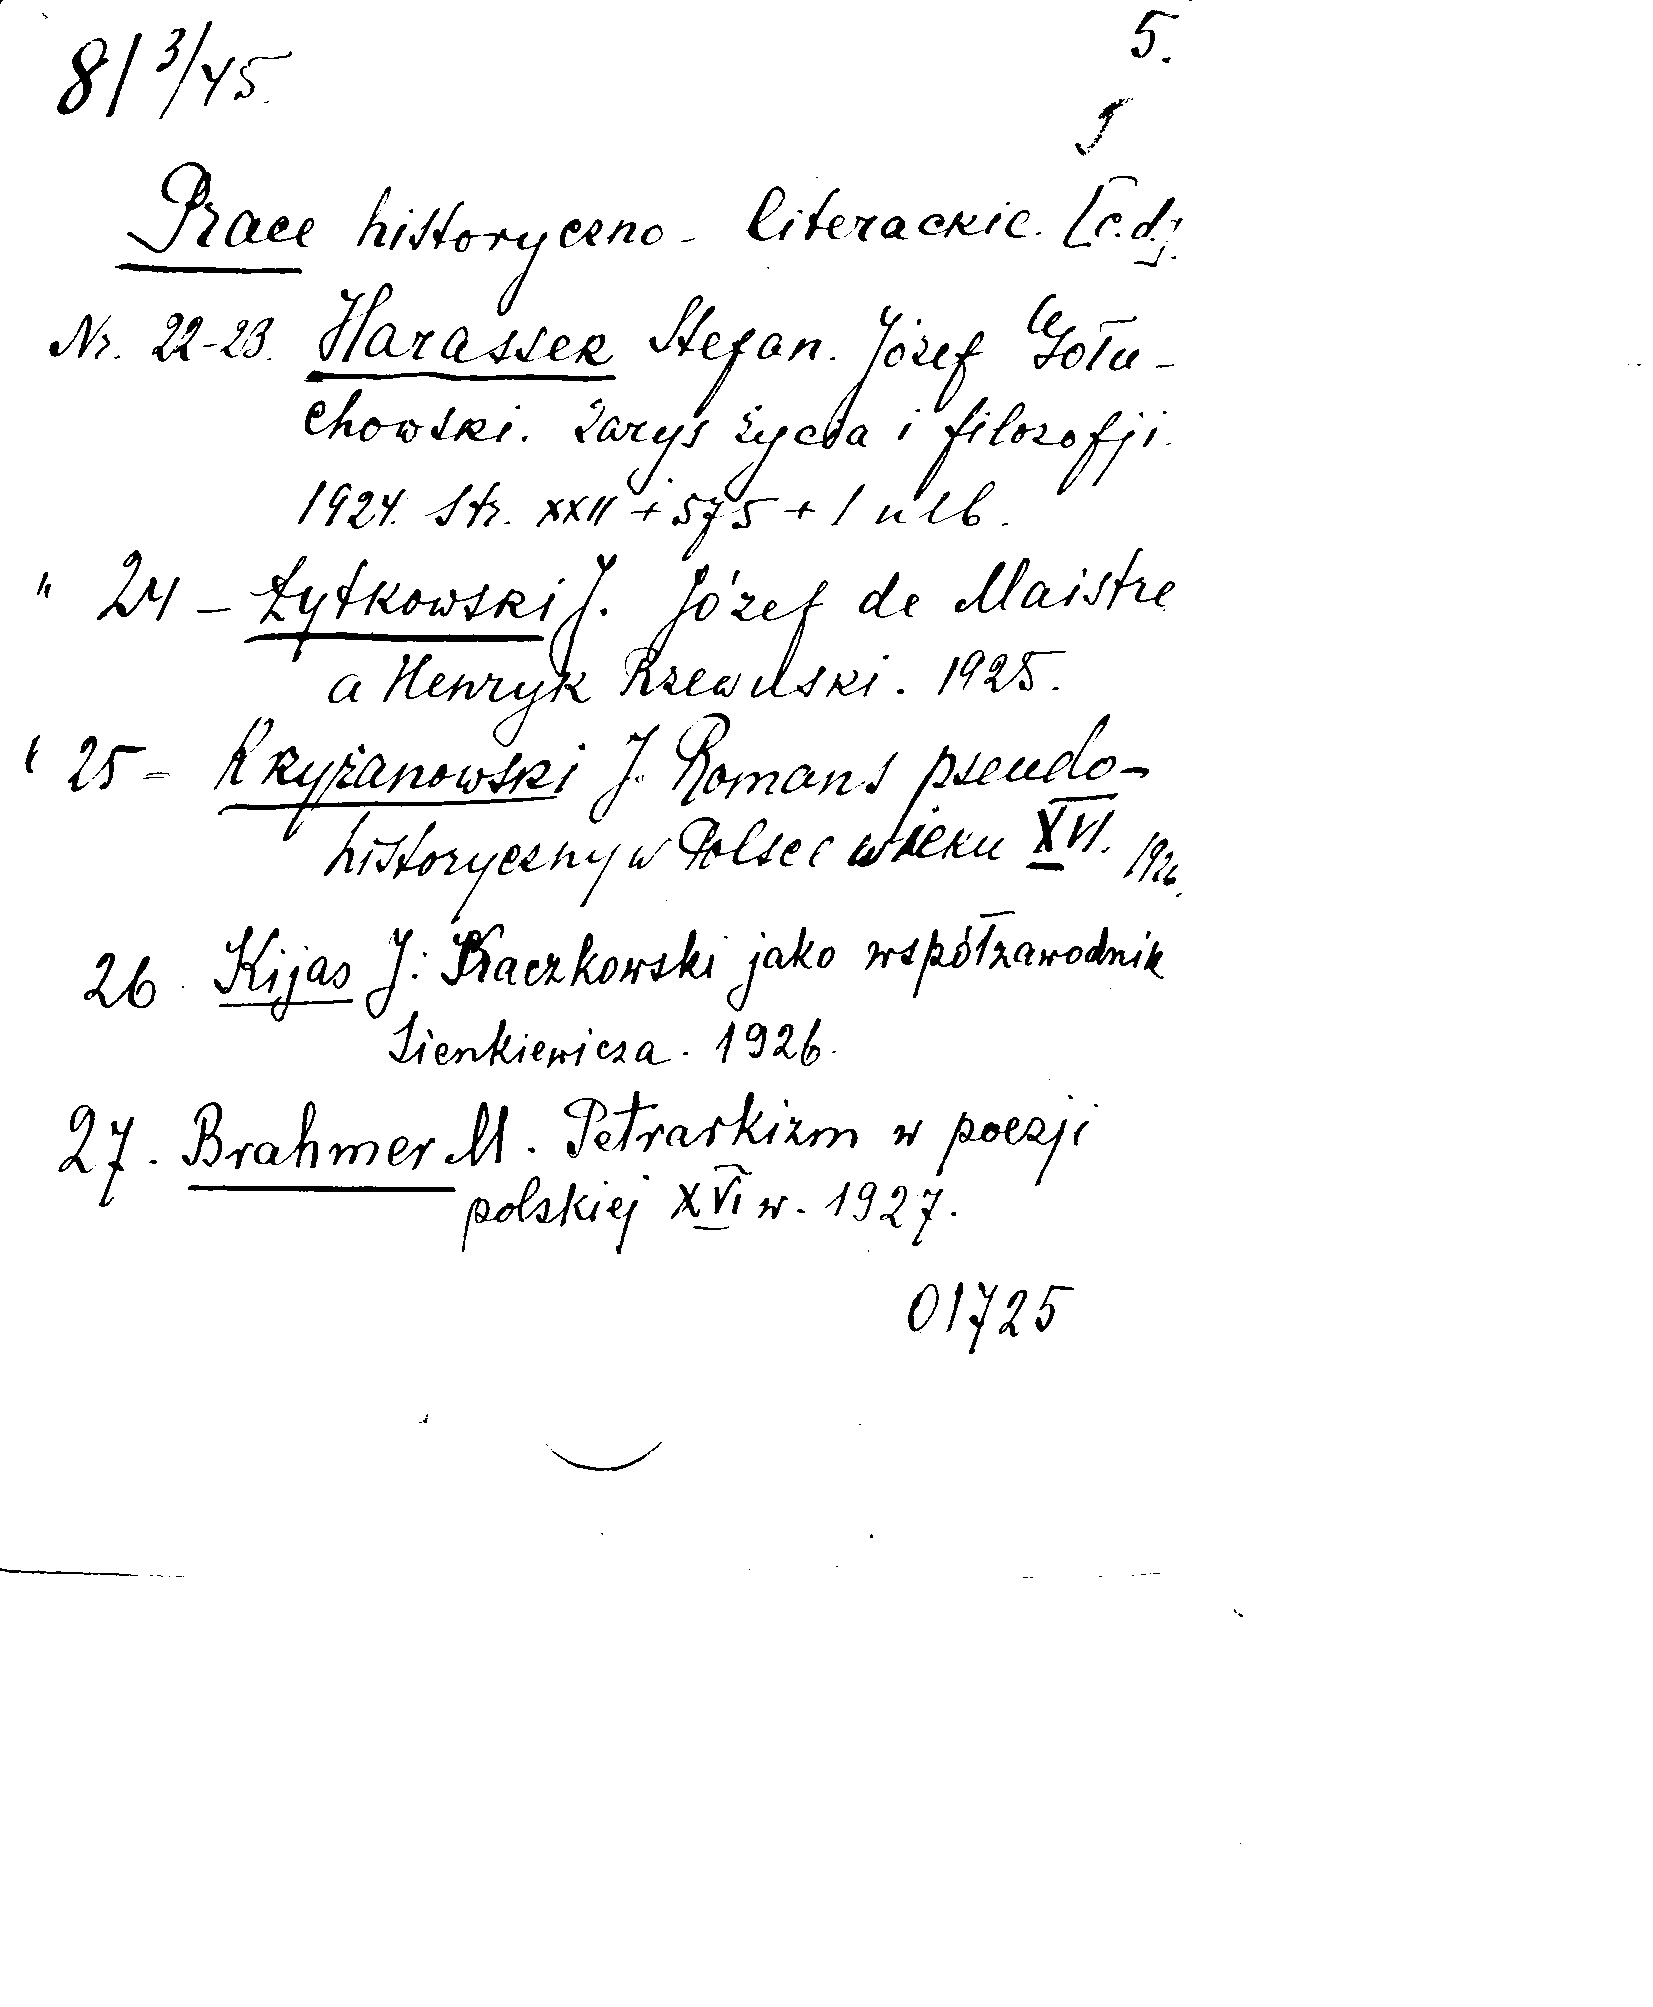 81 3/45.
5.
Prace historyczno-literackie. [c.d.].
Nr. 22-23. Harassek Stefan. Józef Gołu-
chowski. Zarys życia i filozofji.
1924. Str. XXII + 575 + 1 nlb.
" 24 - Żytkowski J. Józef de Maistre
a Henryk Rzewuski. 1925.
" 25 - Krzyżanowski J. Romans pseudo-
historyczny w Polsce wieku XVI. 1926.
26. Kijas J. Kaczkowski jako współzawodnik
Sienkiewicza. 1926.
27. Brahmer M. Petrarkizm w poezji
polskiej XVI w. 1927.
01725